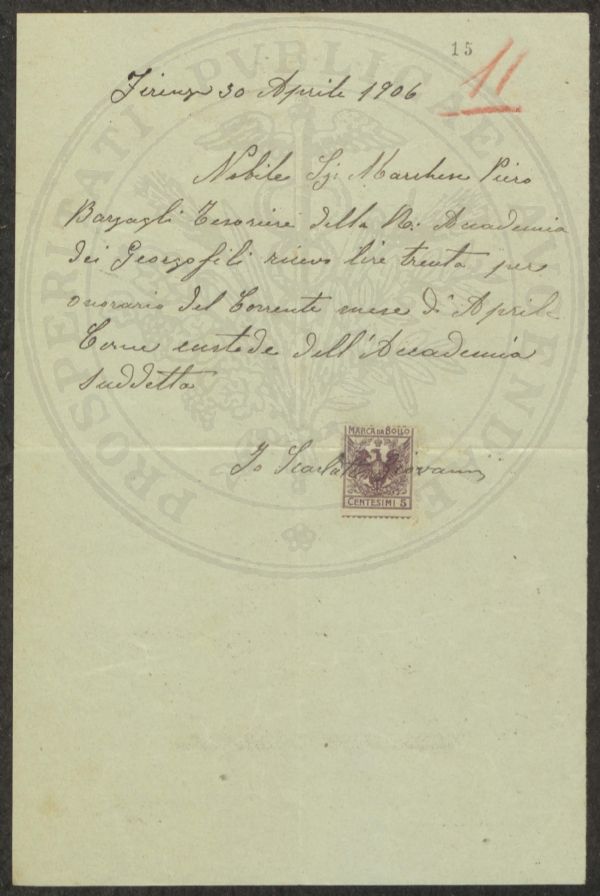 15
11
Firenze 30 Aprile 1906
Nobile Sig: Marchese Piero
Bargagli Tesoriere della R. Accademia
dei Georgofili ricevo lire trenta per
onorario del Corrente mese di Aprile
Come custode dell'Accademia
suddetta
MARCA DA BOLLO
Io Scarlatti Giovanni
CENTESIMI 5
PROSPERITATI PVBLICAE AVGENDAE